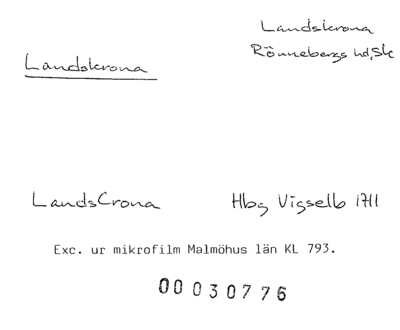 Landskrona
Landskrona
Rönnebergs hd, Sk
LandsCrona
Hbg Vigselb 1711
Exc. ur mikrofilm Malmöhus län KL 793.
00030776